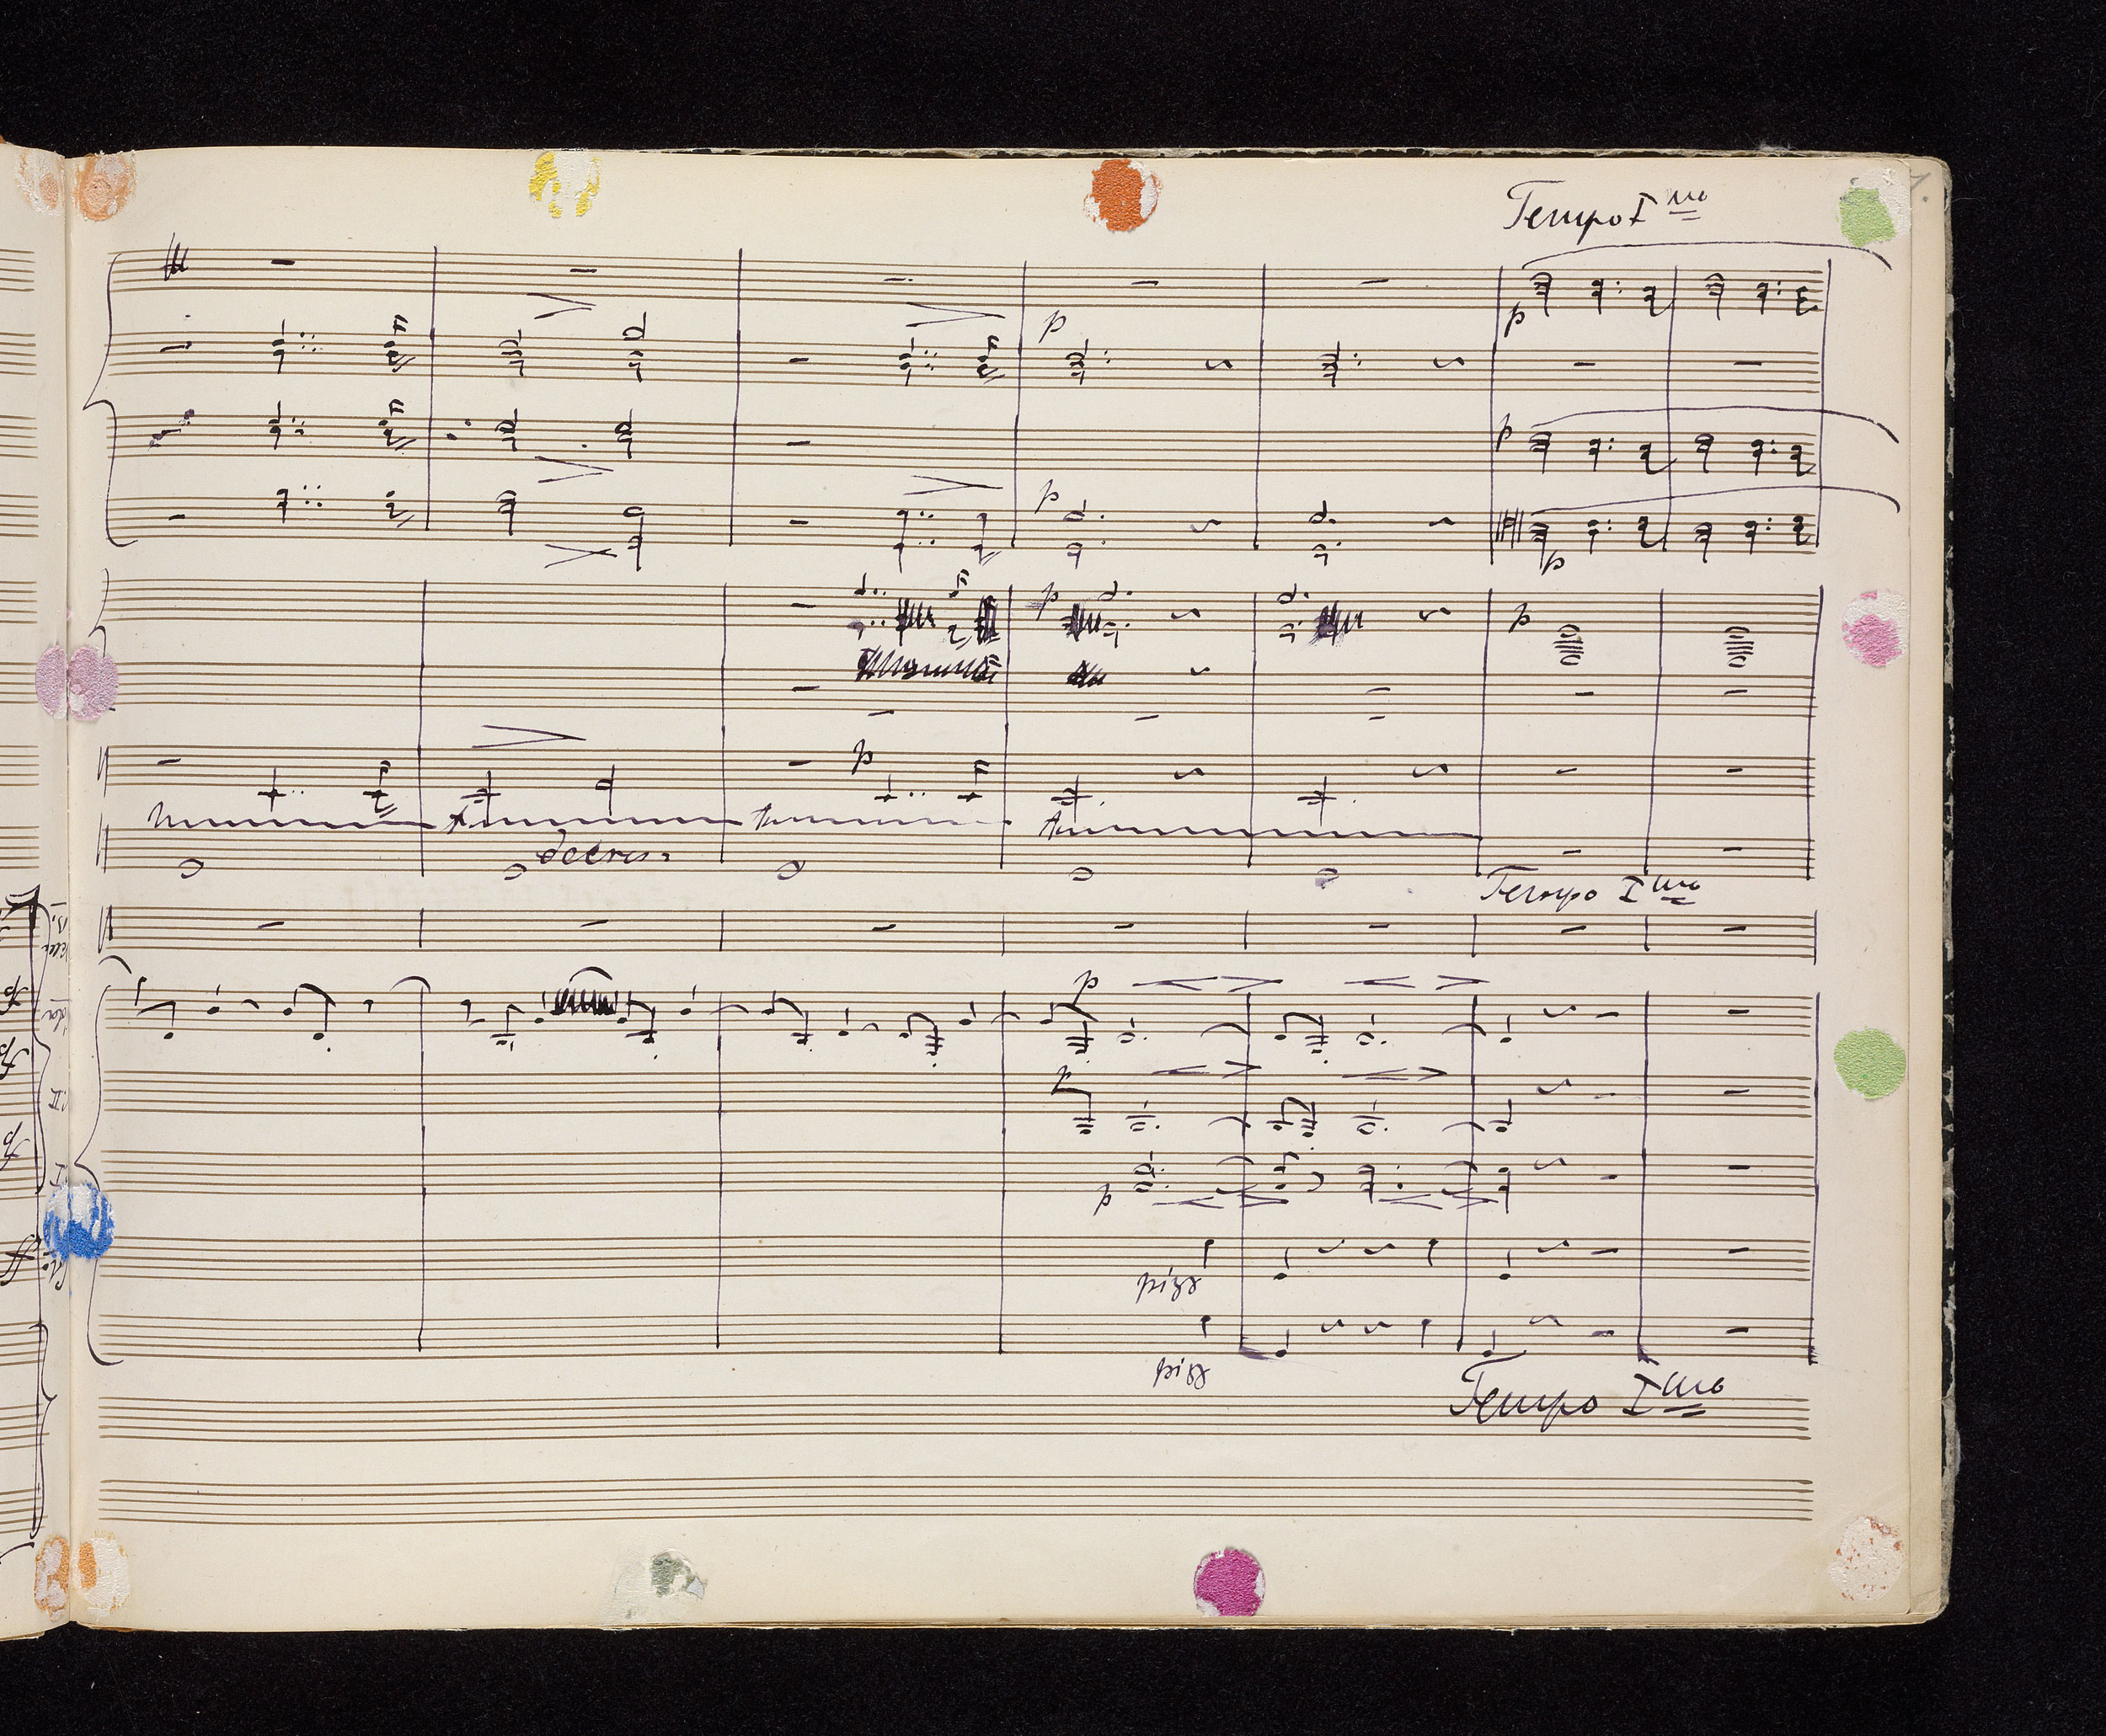 Tempo I mo
p
p
p
p
p
p
p
p
p
decres.
Tempo I mo
p
p
p
pizz
pizz
Tempo I mo